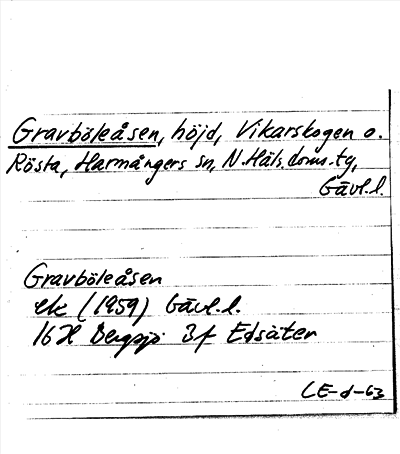 Gravböleåsen, höjd, Vikarskogen o.
Rösta, Harmångers sn, N. Häls. doms. tg,
Gävl.l.
Gravböleåsen
ek (1959) Gävl.l.
16H Bergsjö 3f Edsäter
CE-d-63